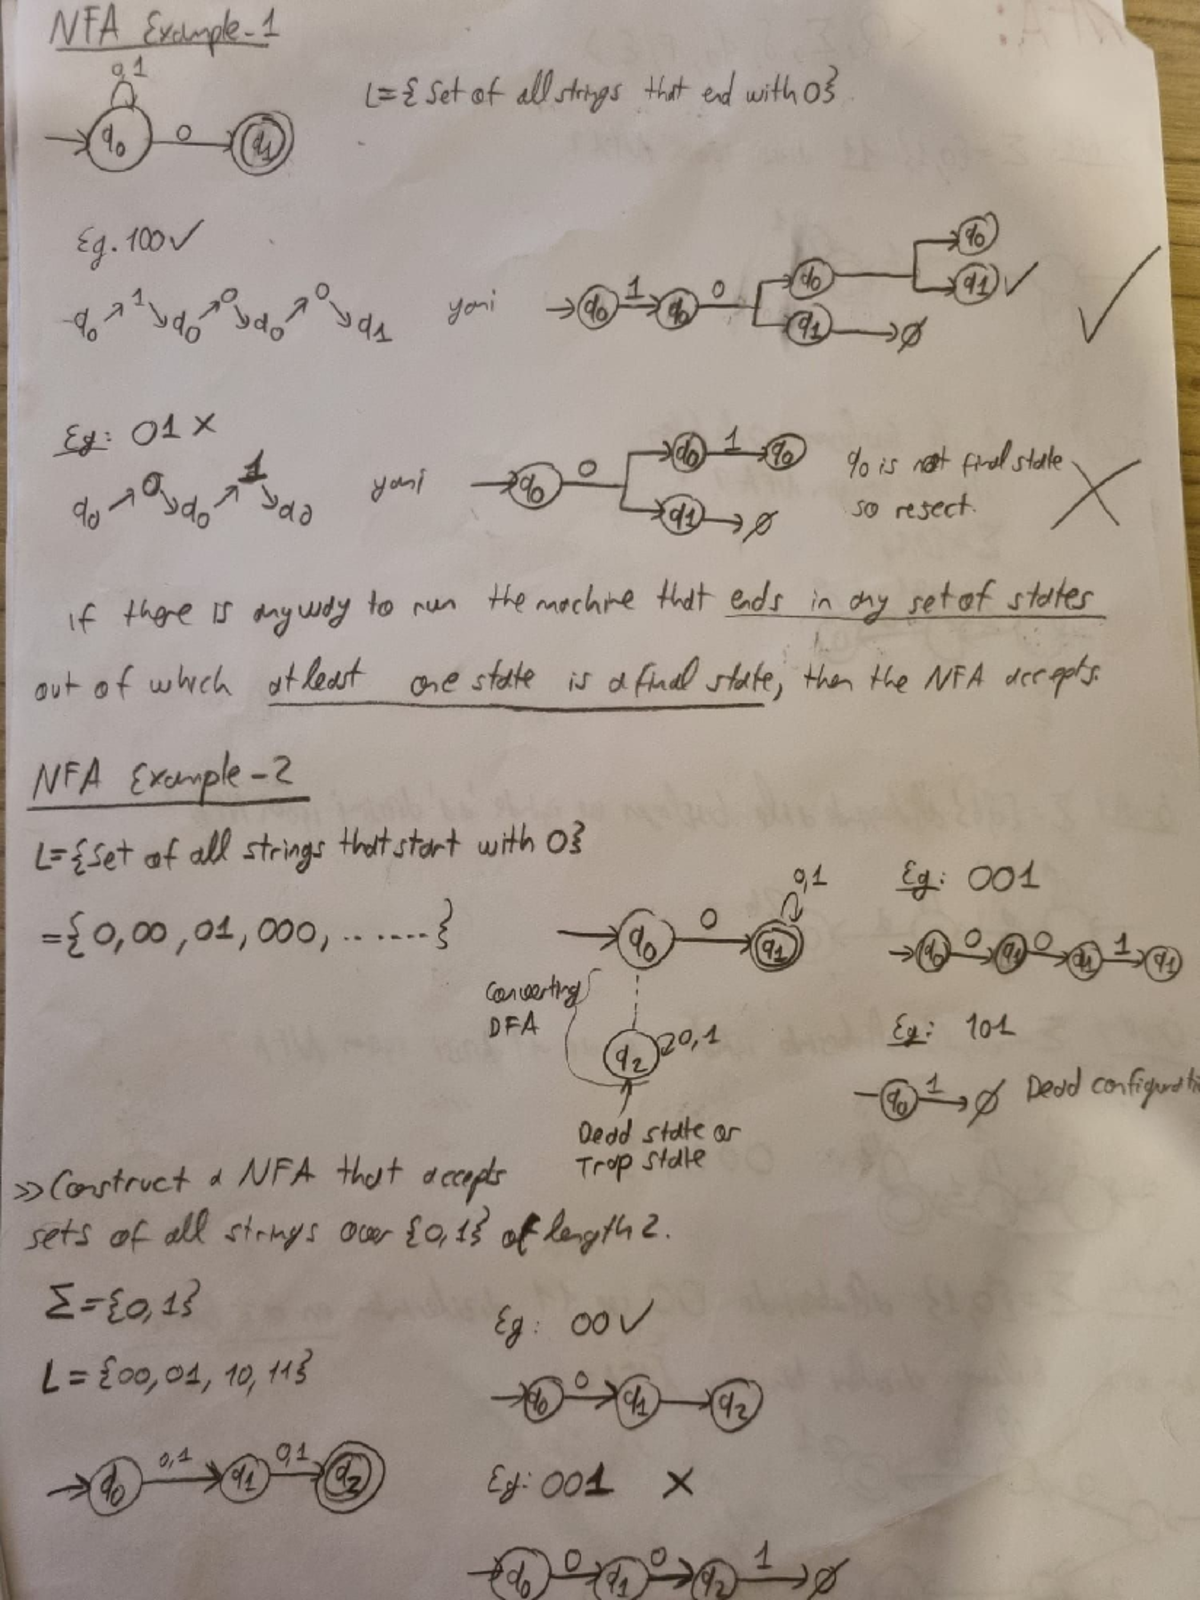 NFA Example-1
0,1
L={Set of all strings that end with 0}
q0 0 q1
Eg. 100✓
q0
1 0
q0 q0
q1 ✓
q1 ∅
q0 ↗ 1 ↘ q0 ↗ 0 ↘ q0 ↗ 0 ↘ q1
yani
Eg: 01 ×
q0 0 q0 1 q0
q1 ∅
q0 ↗ 0 ↘ q0 ↗ 1 ↘ q0
yani
q0 is not final state
so resect.
if there is anyway to run the machine that ends in any set of states
out of which at least one state is a final state, then the NFA accepts.
NFA Example-2
L={Set of all strings that start with 0}
={0,00,01,000,.......}
0,1
q0 0 q1
Converting
DFA
q2 0,1
Dead state or
Trap state
Eg: 001
q0 0 q1 0 q1 1 q1
Eg: 101
q0 1 ∅ Dead configurati
>> Construct a NFA that accepts
sets of all strings over {0,1} of length 2.
Σ={0,1}
L={00,01,10,11}
q0 0,1 q1 0,1 q2
Eg: 00✓
q0 0 q1 q2
Eg: 001 ×
q0 0 q1 0 q2 1 ∅